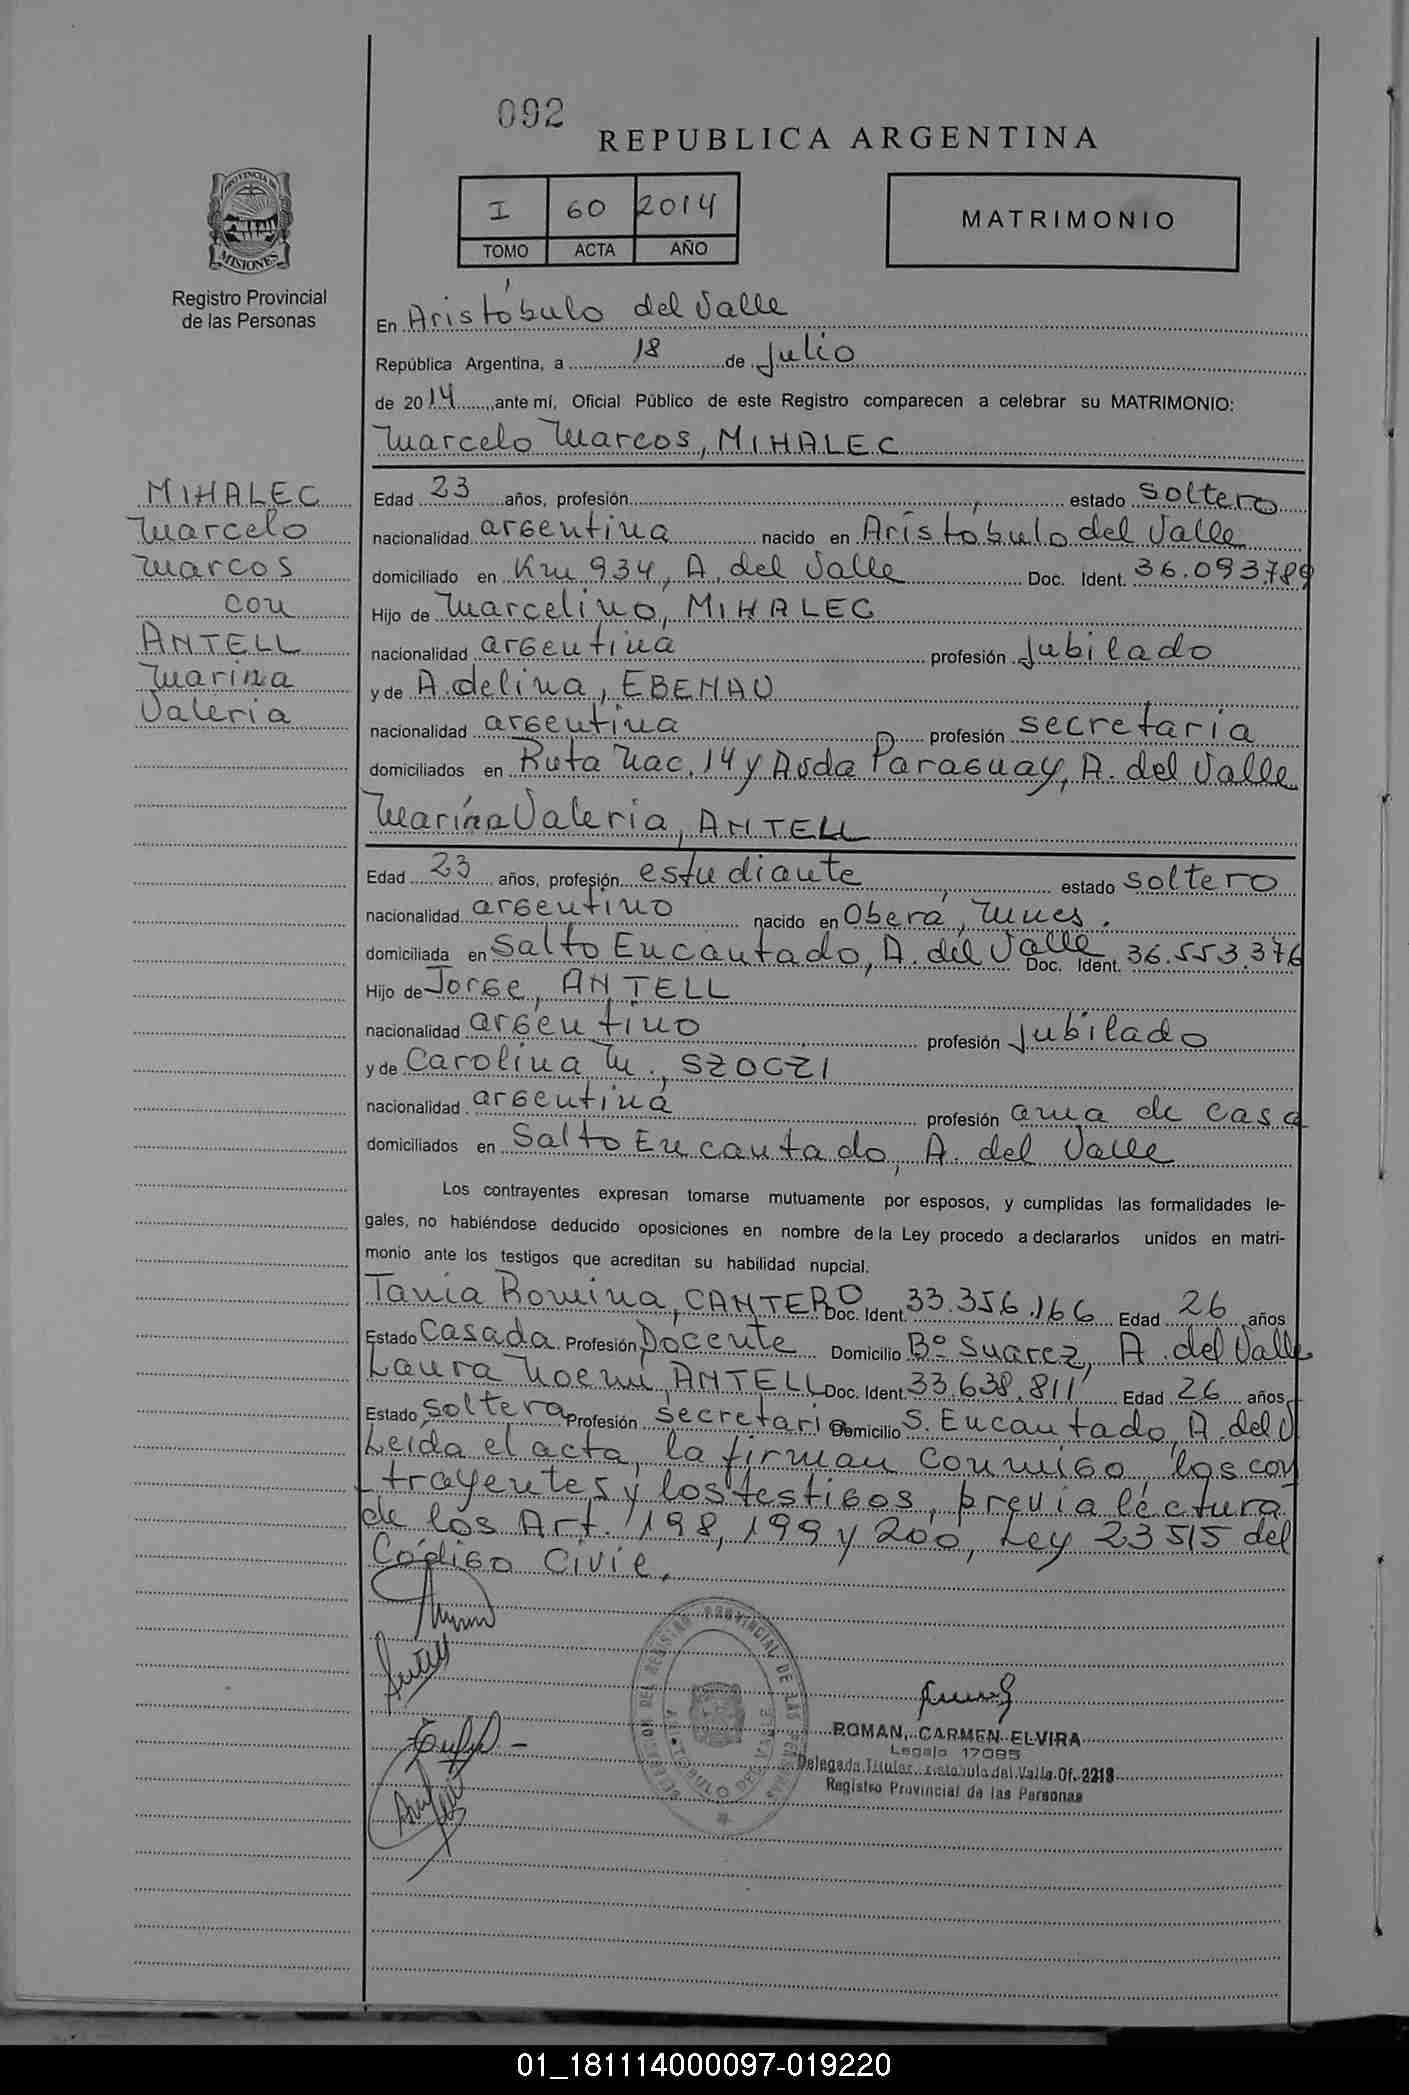 092
REPUBLICA ARGENTINA
PROVINCIA DE
MISIONES
Registro Provincial
de las Personas
I 60 2014
TOMO ACTA AÑO
MATRIMONIO
En Aristóbulo del Valle
República Argentina, a 18 de Julio
de 2014, ante mí, Oficial Público de este Registro comparecen a celebrar su MATRIMONIO:
Marcelo Marcos, MIHALEC
MIHALEC
Marcelo
Marcos
con
ANTELL
Marina
Valeria
Edad 23 años, profesión estado soltero
nacionalidad argentina nacido en Aristobulo del Valle
domiciliado en Km 934, A. del Valle Doc. Ident. 36.093.789
Hijo de Marcelino, MIHALEC
nacionalidad argentina profesión Jubilado
y de Adelina, EBENAU
nacionalidad argentina profesión secretaria
domiciliados en Ruta Nac. 14 y Avda Paraguay, A. del Valle
Marina Valeria, ANTELL
Edad 23 años, profesión estudiante estado soltero
nacionalidad argentino nacido en Oberá, Mnes.
domiciliada en Salto Encantado, A. del Valle Doc. Ident. 36.553.376
Hijo de Jorge, ANTELL
nacionalidad argentino profesión Jubilado
y de Carolina M., SZOCZI
nacionalidad argentina profesión ama de casa
domiciliados en Salto Encantado, A. del Valle
Los contrayentes expresan tomarse mutuamente por esposos, y cumplidas las formalidades le-
gales, no habiéndose deducido oposiciones en nombre de la Ley procedo a declararlos unidos en matri-
monio ante los testigos que acreditan su habilidad nupcial.
Tania Romina, CANTERO Doc. Ident. 33.356.166 Edad 26 años
Estado Casada Profesión Docente Domicilio Bº Suarez, A. del Valle
Laura Noemi, ANTELL Doc. Ident. 33.638.811 Edad 26 años
Estado soltera Profesión secretaria Domicilio S. Encantado, A. del V
Leída el acta, la firman conmigo los con
trayentes y los testigos, previa lectura
de los Art. 198, 199 y 200, Ley 23515 del
Código Civil.
DELEGACION DEL REGISTRO PROVINCIAL DE LAS PERSONAS
ARISTOBULO DEL VALLE
ROMAN, CARMEN ELVIRA
Legajo 17085
Delegada Titular Aristobulo del Valle Of. 2218
Registro Provincial de las Personas
01_181114000097-019220